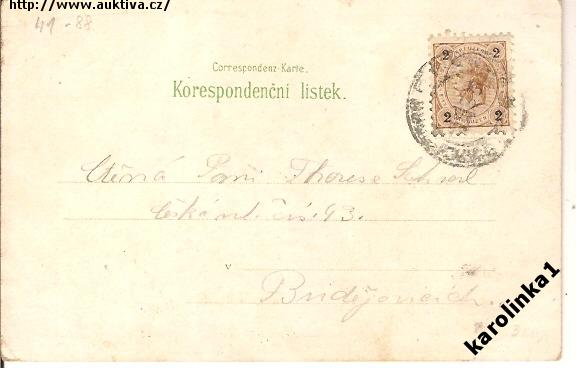 http://www.auktiva.cz/
41-88
Correspondenz-Karte.
Korespondenční lístek.
2 2
2 2
Ctěná Paní Therese
Česká ul. čís 43.
v
Budějovicích.
karolinka1